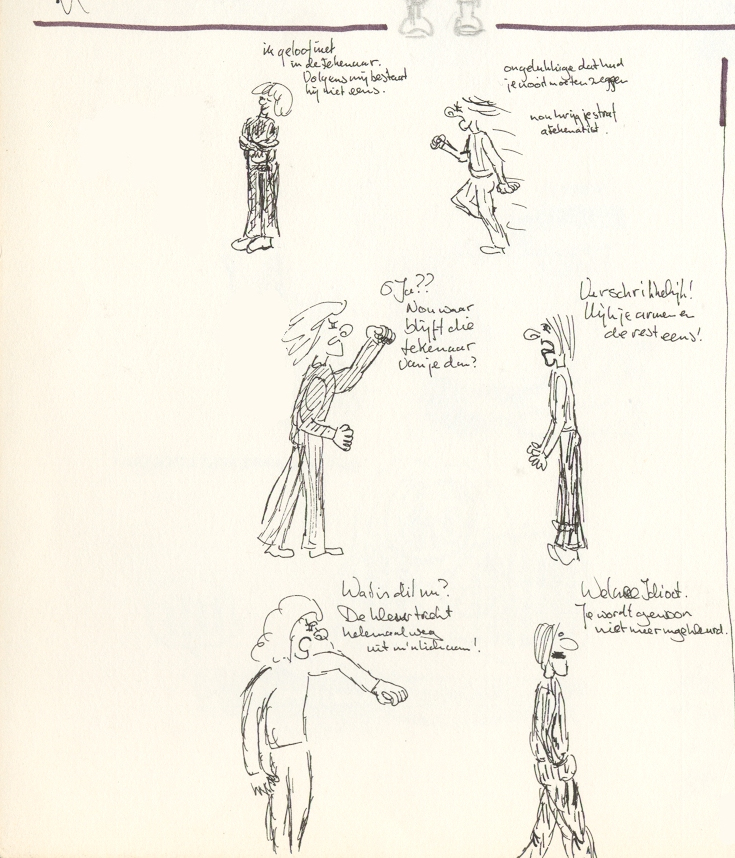 ik geloof niet
in de tekenaar.
Volgens mij bestaat
hij niet eens.
ongelukkige dat had
je nooit moeten zeggen
nou krijg je straf
O Ja??
Nou waar
blijft die
tekenaar
van je dan?
Verschrikkelijk!
Kijk je armen en
de rest eens!
Wat is dit nu?
De kleur trekt
helemaal weg
uit m'n lichaam!
Idioot.
Je wordt gewoon
niet meer ingekleurd.